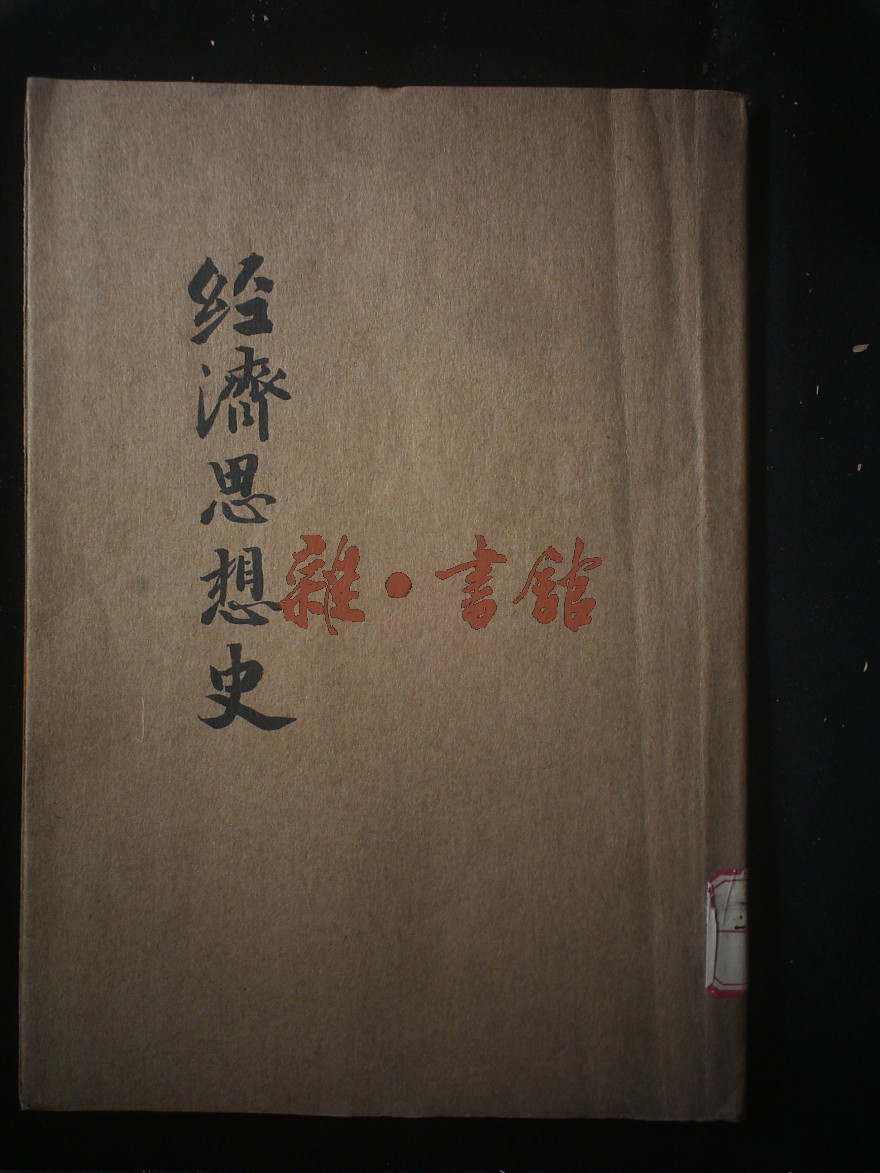 经濟思想史
雜·書館